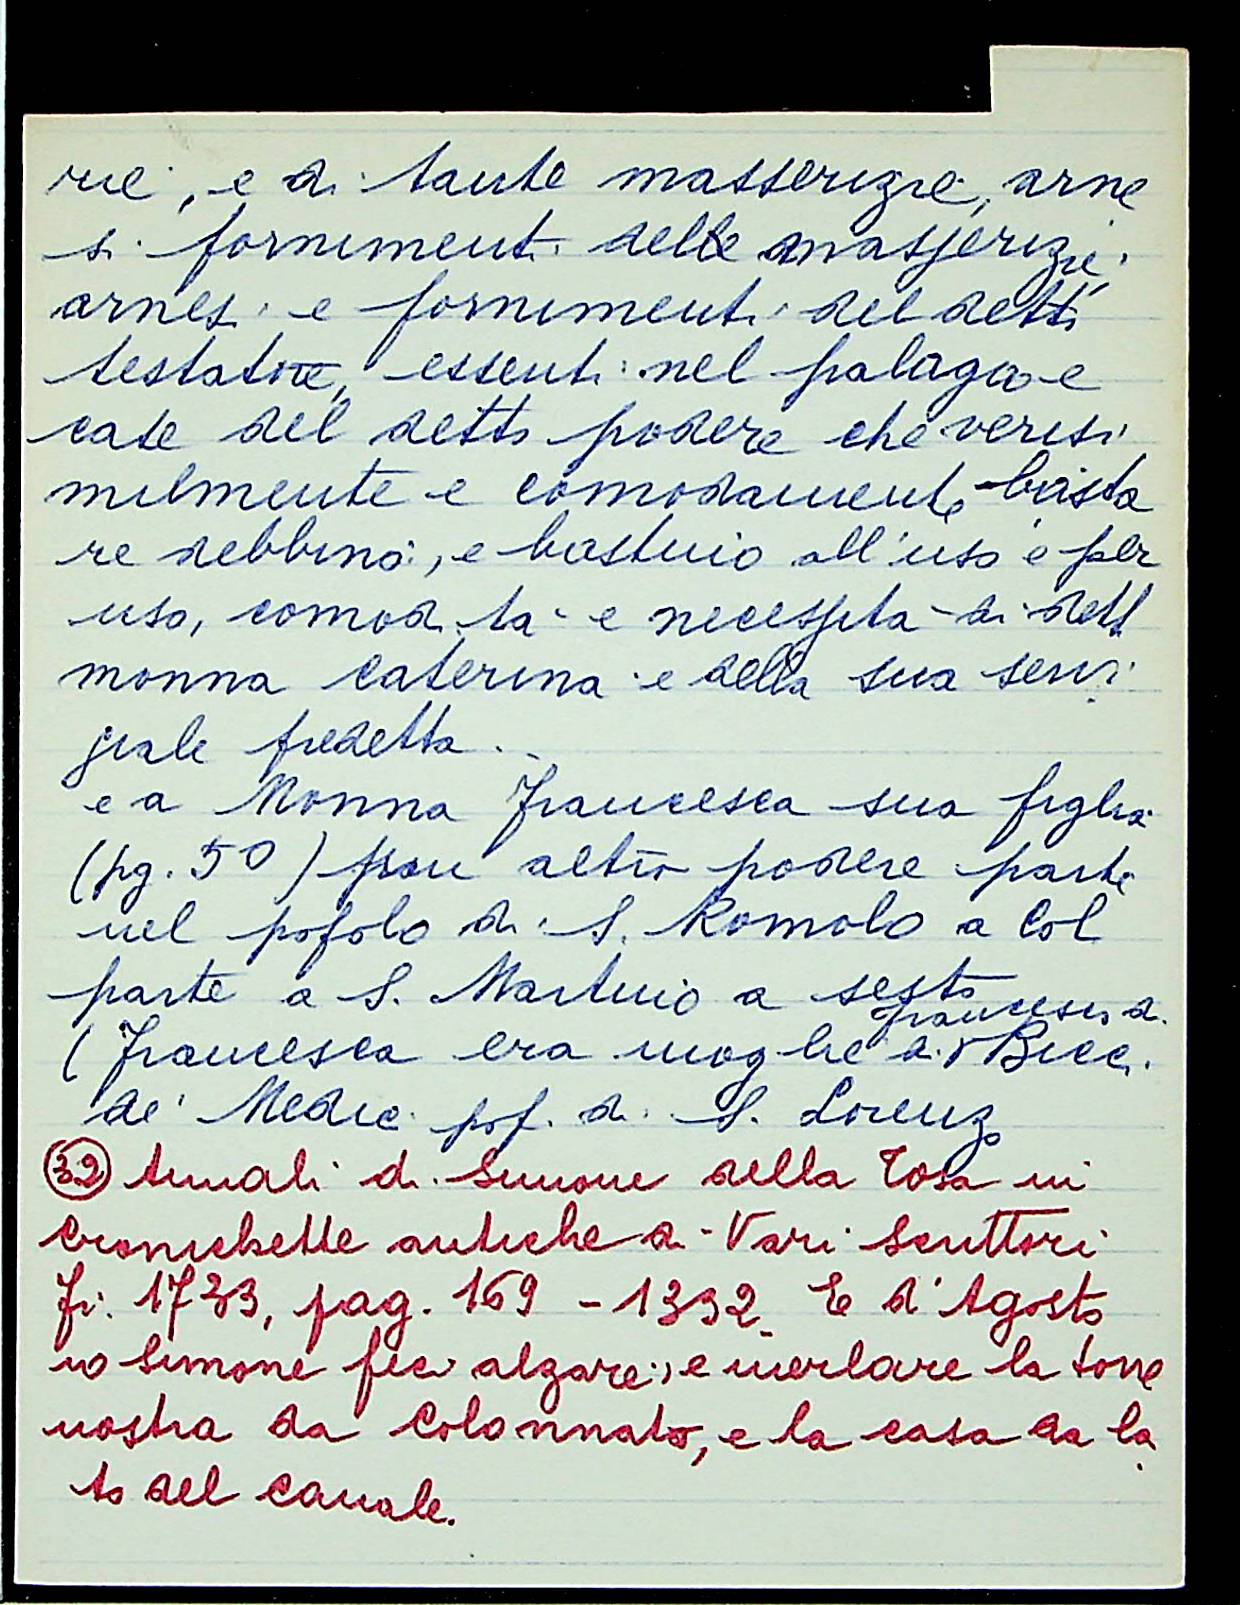 rie, e di tante masserizie, arne
si fornimenti delle masserizie
arnesi e fornimenti del detto
testatore, essenti nel palagio e
case del detto podere che verisi
milmente e comodamente basta
re debbino, e bastino all'uso e per
uso, comodità e necessità di dett
monna Caterina e della sua servi
giale predetta.
e a Monna Francesca sua figlia
(pg. 50) un altro podere parte
nel popolo di S. Romolo a Col
parte a S. Martino a Sesto
(Francesca era moglie di Francesco di Bicci
de' Medici pop. di S. Lorenzo
(32) Annali di Simone della Tosa in
Cronichette antiche di Vari Scrittori
Fi. 1733, pag. 169 - 1332. E d'Agosto
io Simone feci alzare, e merlare la torre
nostra da Colonnato, e la casa da la
to del canale.